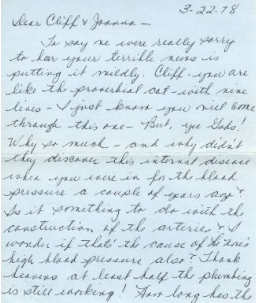 3-22-78
Dear Cliff & Joanna —
To say we were really sorry
to hear your terrible news is
putting it mildly. Cliff - you are
like the proverbial cat - with nine
lives - I just know you will come
through this one - But, ye Gods!
Why so much - and why didn't
they discover this internal disease
when you were in for the blood
pressure a couple of years ago?
Is it something to do with the
construction of the arteries & I
wonder if that's the cause of
high blood pressure also? Thank
heavens at least half the plumbing
is still working! How long has the